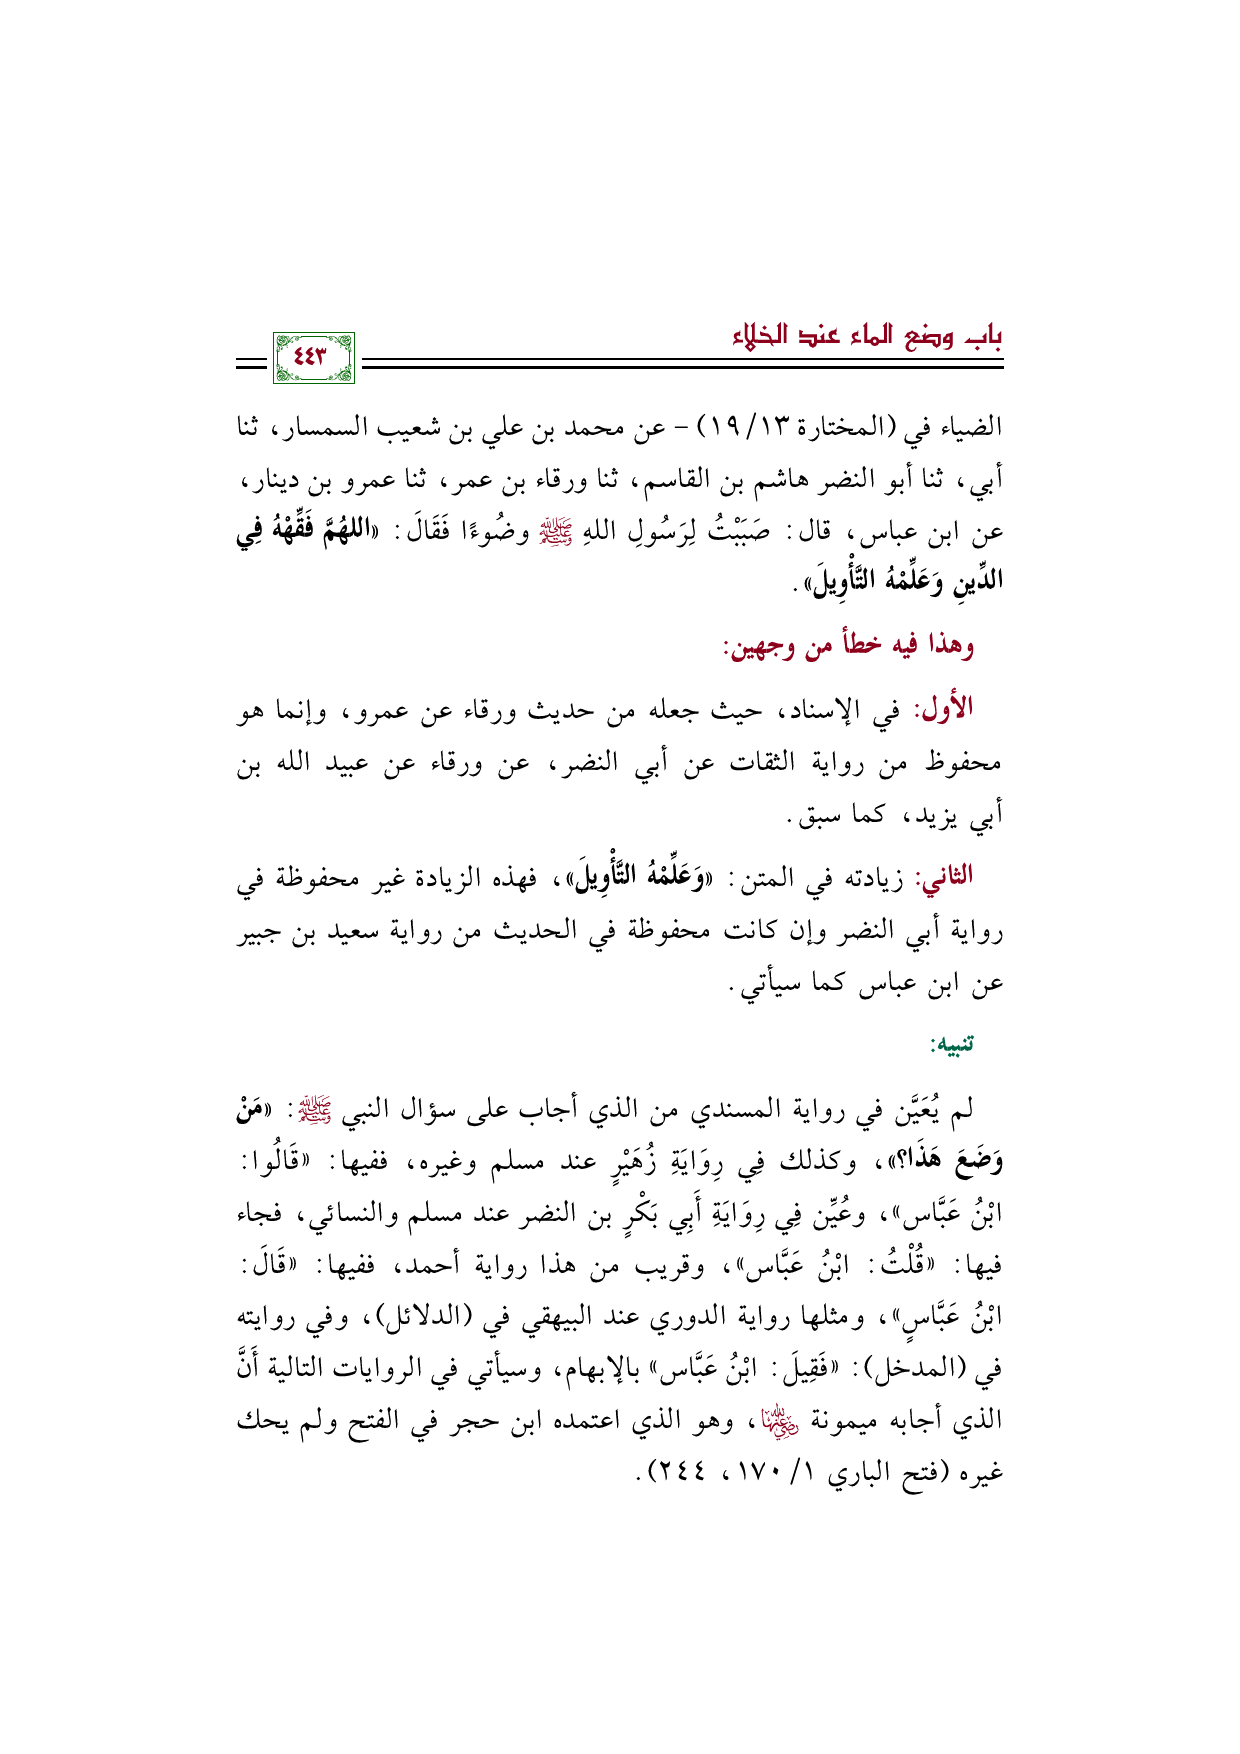 باب وضع الماء عند الخلاء
٤٤٣
الضياء في (المختارة ١٣/ ١٩) - عن محمد بن علي بن شعيب السمسار، ثنا
أبي، ثنا أبو النضر هاشم بن القاسم، ثنا ورقاء بن عمر، ثنا عمرو بن دينار،
عن ابن عباس، قال: صَبَبْتُ لِرَسُولِ اللهِ ﷺ وضُوءًا فَقَالَ: «اللهُمَّ فَقِّهْهُ فِي
الدِّينِ وَعَلِّمْهُ التَّأْوِيلَ».
وهذا فيه خطأ من وجهين:
الأول: في الإسناد، حيث جعله من حديث ورقاء عن عمرو، وإنما هو
محفوظ من رواية الثقات عن أبي النضر، عن ورقاء عن عبيد الله بن
أبي يزيد، كما سبق.
الثاني: زيادته في المتن: «وَعَلِّمْهُ التَّأْوِيلَ»، فهذه الزيادة غير محفوظة في
رواية أبي النضر وإن كانت محفوظة في الحديث من رواية سعيد بن جبير
عن ابن عباس كما سيأتي.
تنبيه:
لم يُعَيَّن في رواية المسندي من الذي أجاب على سؤال النبي ﷺ: «مَنْ
وَضَعَ هَذَا؟»، وكذلك فِي رِوَايَةِ زُهَيْرٍ عند مسلم وغيره، ففيها: «قَالُوا:
ابْنُ عَبَّاس»، وعُيِّن فِي رِوَايَةِ أَبِي بَكْرٍ بن النضر عند مسلم والنسائي، فجاء
فيها: «قُلْتُ: ابْنُ عَبَّاس»، وقريب من هذا رواية أحمد، ففيها: «قَالَ:
ابْنُ عَبَّاسٍ»، ومثلها رواية الدوري عند البيهقي في (الدلائل)، وفي روايته
في (المدخل): «فَقِيلَ: ابْنُ عَبَّاس» بالإبهام، وسيأتي في الروايات التالية أَنَّ
الذي أجابه ميمونة رضي الله عنها، وهو الذي اعتمده ابن حجر في الفتح ولم يحك
غيره (فتح الباري ١/ ١٧٠، ٢٤٤).